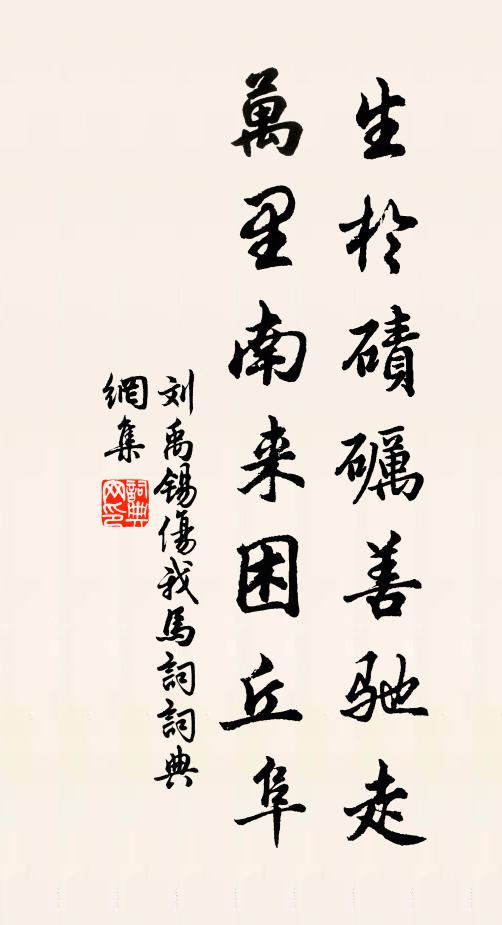 生於磧礪善驰走
萬里南来困丘阜
刘禹锡傷我馬詞詞典
網集
詞典
网印